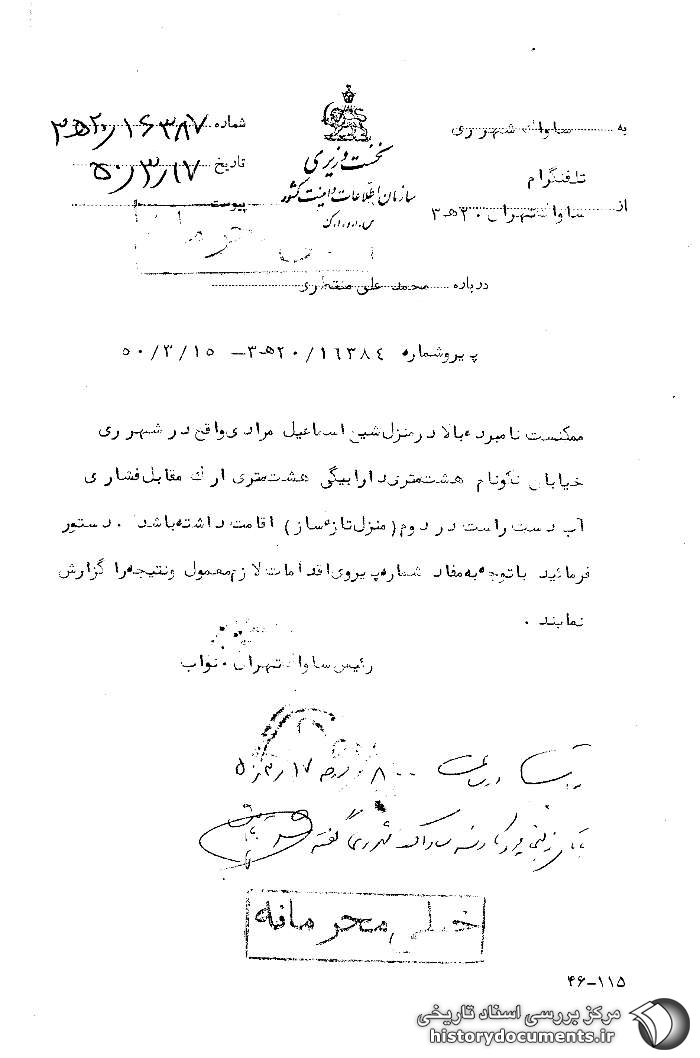 به ساواک شهر ری
شماره ۱۶۳۸۷/۲۰ﻫ۳
نخست وزیری
تاریخ ۵۰/۳/۱۷
سازمان اطلاعات و امنیت کشور
تلفنگرام
از ساواک تهران ۲۰ﻫ۳
پیوست
س.ا.و.ا.ک
درباره محمد علی منتظری
پیرو شماره ۱٦۳۸٤/۲۰ﻫ۳ – ۵۰/۳/۱۵
ممکنست نامبرده بالا در منزل شیخ اسماعیل مرادی واقع در شهر ری
خیابان نکونام هشت متری دارابیگی هشت متری ارک مقابل فشاری
آب دست راست در دوم (منزل تازه ساز) اقامت داشته باشد. دستور
فرمائید با توجه به مفاد شماره پیروی اقدامات لازم معمول و نتیجه را گزارش
نمایند.
رئیس ساواک تهران. نواب
ساعت ۸۰۰ روز ۵۰/۳/۱۷
ساواک شهرری گفته شد
خیلی محرمانه
۴۶-۱۱۵
مرکز بررسی اسناد تاریخی
historydocuments.ir